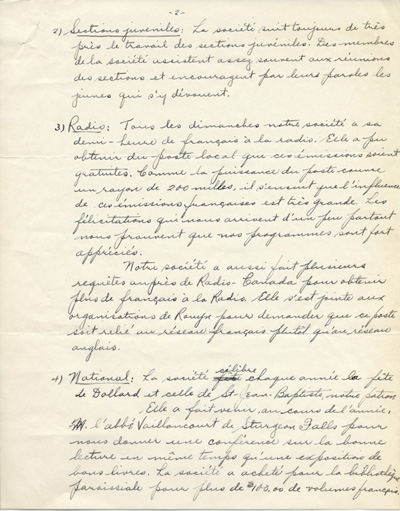 -2-
2) Sections juvéniles: La société suit toujours de très
près le travail des sections juvéniles. Des membres
de la société assistent assez souvent aux réunions
des sections et encouragent par leurs paroles les
jeunes qui s'y dévouent.
3) Radio: Tous les dimanches notre société a sa
demi-heure de français à la radio. Elle a pu
obtenir du poste local que ces émissions soient
gratuites. Comme la puissance du poste couvre
un rayon de 200 milles, il s'ensuit que l'influence
de ces émissions françaises est très grande. Les
félicitations qui nous arrivent d'un peu partout
nous prouvent que nos programmes sont fort
appréciés.
Notre société a aussi fait plusieurs
requêtes auprès de Radio-Canada pour obtenir
plus de français à la Radio. Elle s'est jointe aux
organisations de Rouyn pour demander que ce poste
soit relié au réseau français plutôt qu'au réseau
anglais.
4) National: La société célèbre chaque année la fête
de Dollard et celle de St-Jean-Baptiste, notre patron.
Elle a fait venir, au cours de l'année,
M. l'abbé Vaillancourt de Sturgeon Falls pour
nous donner une conférence sur la bonne
lecture en même temps qu'une exposition de
bons livres. La société a acheté pour la bibliothèque
paroissiale pour plus de $100.00 de volumes français.